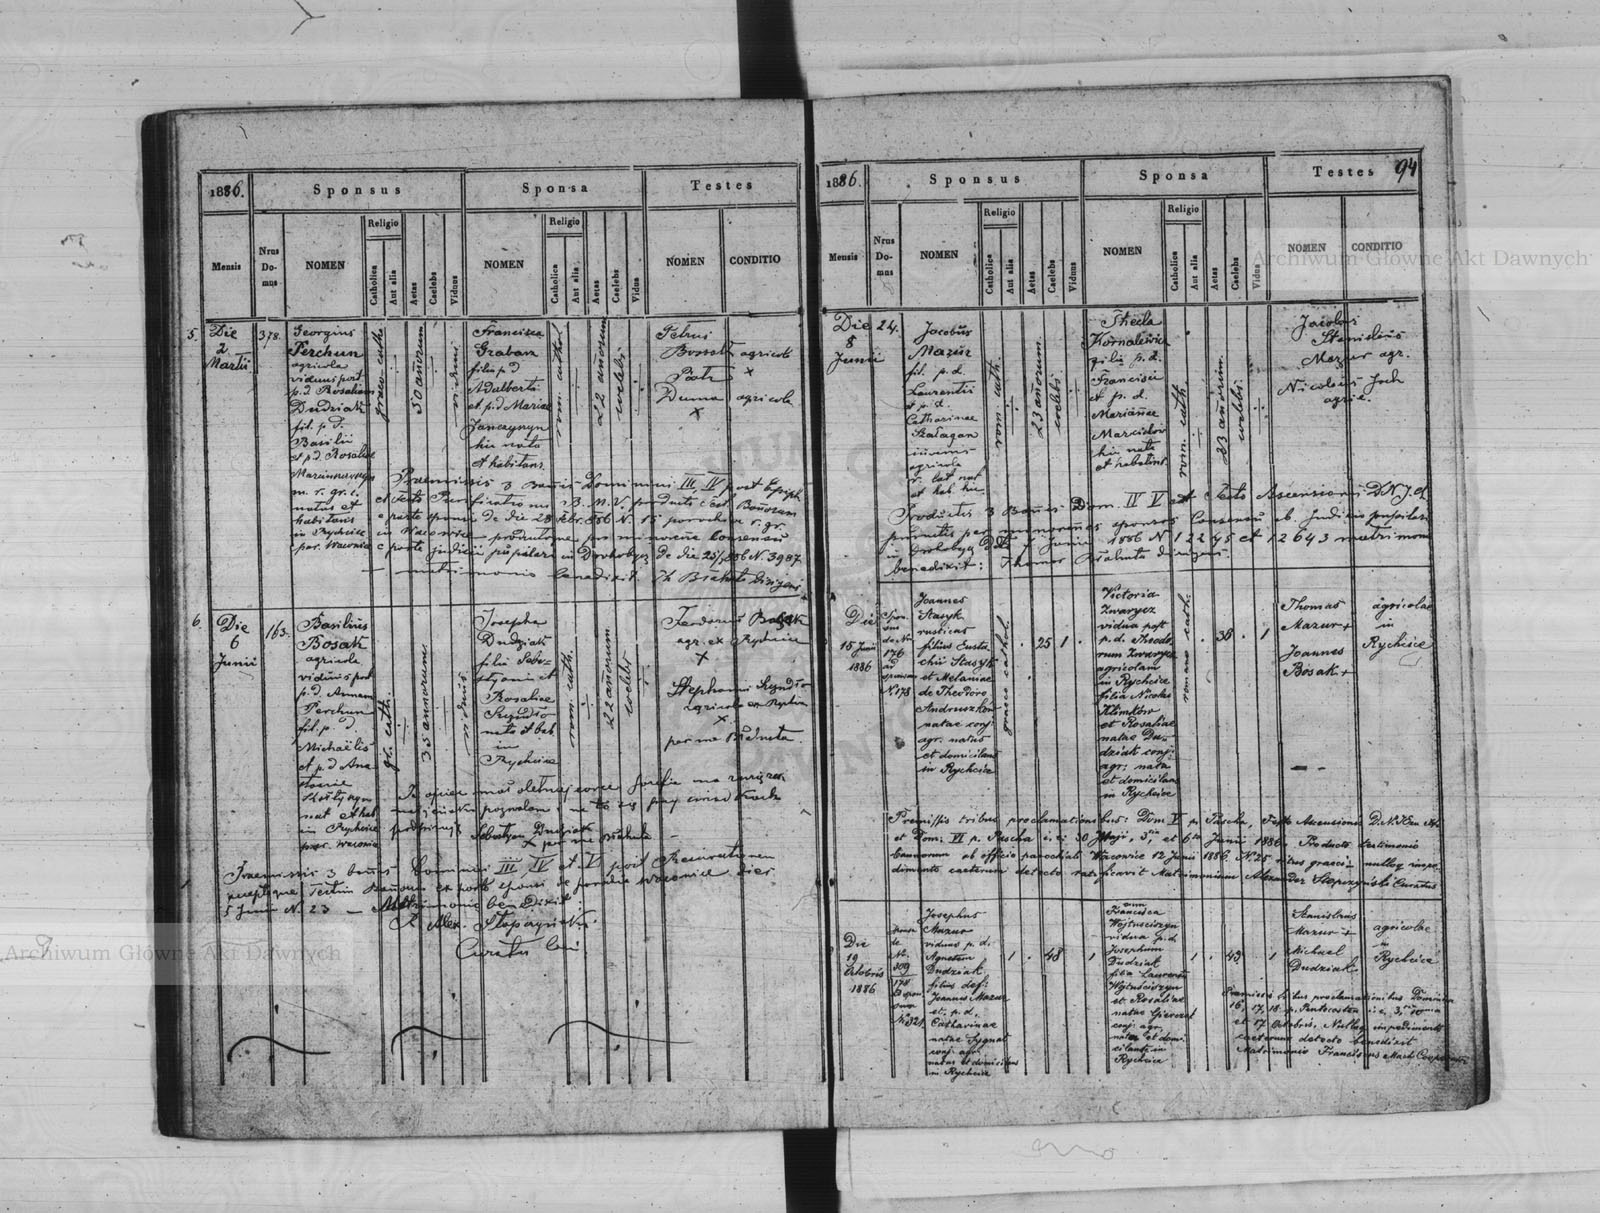 1886.
Sponsus
Sponsa
Testes
Mensis
Nrus Do- mus
NOMEN
Religio
Catholica
Aut alia
Aetas
Caelebs
Viduus
NOMEN
Religio
Catholica
Aut alia
Aetas
Caelebs
Vidua
NOMEN
CONDITIO
5.
Die
2
Martii
378.
Georgius
Perchun
agricola
viduus post
p.d. Rosaliam
Dudziak
fil. p. d.
Basilii
et p.d. Rosaliae
m. r. gr. c.
natus et
habitans
in Rychcice
par. Wacowice
graeco cath.
50 annorum
viduus
Francisca
Graban
filia p d
Adalberti
et p.d. Mariae
Janczyszyn
hic nata
et habitans.
rom. cath.
22 annorum
coelebs
Petrus
Bosak agricola
x
Duma agricola
x
Praemissis 3 Bannis Dominica III, IV post Epiph.
et Festo Purificationis B. M. V. producto test. Bannorum
e parte sponsi de die 28 Febr. 886 N. 15 parochiae r. gr.
in Wacowice productoque pro minorenne consensu
e parte judicii pupillaris in Drohobycz de die 25/2 886 N. 3987
matrimonio benedixit
6.
Die
6
Junii
163.
Basilius
Bosak
agricola
viduus post
p.d. Annam
Perchun
fil. p. d
Michaelis
et p. d Ana
stasiae
nat et hab.
in Rychcice
par. Wacowice
gr. cath.
35 annorum
viduus
Josepha
Dudziak
filia Seba-
styani et
Rosaliae
Szydło
nata et hab.
in
Rychcice
rom. cath.
22 annorum
coelebs
Teodorus Bosak
agr. ex Rychcice
x
Stephanus Szydło
agricola ex Rychcice
x
per me Brahuta
Ja ojciec małoletniej córki Józefie na zawarcie
małżeństwa pozwalam i na to się przy świadkach
podpisuję Sebastyan Dudziak
x per me Brahuta
Praemissis 3 bannis Dominica III, IV et V post Resurrectionem
receptoque Testim Bannorum ex parte sponsi de parochia Wacowice dies
5 Junii N. 23 — Matrimonio benedixit:
X. Alex. Stopczyński
Curatus loci.
1886.
Sponsus
Sponsa
Testes
94
Mensis
Nrus Do- mus
NOMEN
Religio
Catholica
Aut alia
Aetas
Caelebs
Viduus
NOMEN
Religio
Catholica
Aut alia
Aetas
Caelebs
Vidua
NOMEN
CONDITIO
Die
8
Junii
24.
Jacobus
Mazur
fil. p. d.
Laurentii
et p. d.
Catharinae
Szałagan
juvenis
agricola
r. lat nat
et hab. hic
rom. cath.
23 annorum
coelebs
Thecla
Kornalewicz
filia p. d.
Francisci
et p. d.
Mariannae
Marcinkow
hic nata
et habitans
rom. cath.
23 annorum
coelebs
Jacobus
Stanislaus
Mazur agr.
Nicolaus Joch
agric.
Productis 3 Bannis Dom. IV V et Festo Ascensionis D.N.J.Ch.
in Drohobycz Ddto 7 Junii 1886 N 12245 et 12643 matrimon
benedixit: Thomas Brahuta dirigens.
Die
15 Junii
1886
Spon
sus
de N.
176
ad
sponsam
N. 178
Joannes
Stasyk
rusticus
filius Eusta
chii Stasyk
et Melaniae
de Theodoro
Andruszków
natae conj:
agr. natus
et domicilans
in Rychcice
graeco cathol.
25
1
Victoria
Zwarycz
vidua post
p.d. Theodo
rum Zwarycz
agricolam
in Rychcice
filia Nicolai
Klimków
et Rosaliae
natae Du-
dziak conj:
agr: nata
et domicilans
in Rychcice
romano cath.
38
1
Thomas
Mazur +
Joannes
Bosak +
agricolae
in
Rychcice
Premissis tribus proclamationibus: Dom. V p. Pascha, Festo Ascensionis D.N.Jesu Chr
et Dom: VI p. Pascha i. e: 30 Maji, 3tia et 6ta Junii 1886. Producto testimonio
bannorum ab officio parochiali Wacowice 12 Junii 1886. N. 25 ritus graeci — nulloq impe-
dimento caeterum detecto ratificavit Matrimonium Alexander Stopczyński Curatus
Die
19
Octobris
1886
Sponsi
de
N.
309
178
N. 321
Josephus
Mazur
viduus p. d.
Agnetem
Dudziak
filius def:
Joannis Mazur
et p. d.
Catharinae
natae Sygnat
conj. agr.
natus et domicilans
in Rychcice
1
48
1
Francisca
Wojtuściszyn
vidua p.d.
Josephum
Dudziak
filia Laurentii
Wojtuściszyn
et Rosaliae
conj. agr.
nata et domi-
cilans in
Rychcice
1
43
1
Stanislaus
Mazur +
Michael
Dudziak
agricolae
in
Rychcice
Praemissis tribus proclamationibus Dominica
16, 17, 18 p. Pentecosten i. e. 3, 10
et 17 Octobris. Nulloq impedimento
caeterum detecto benedixit
Matrimonio Franciscus Mach Cooperator
Archiwum Główne Akt Dawnych
Archiwum Główne Akt Dawnych